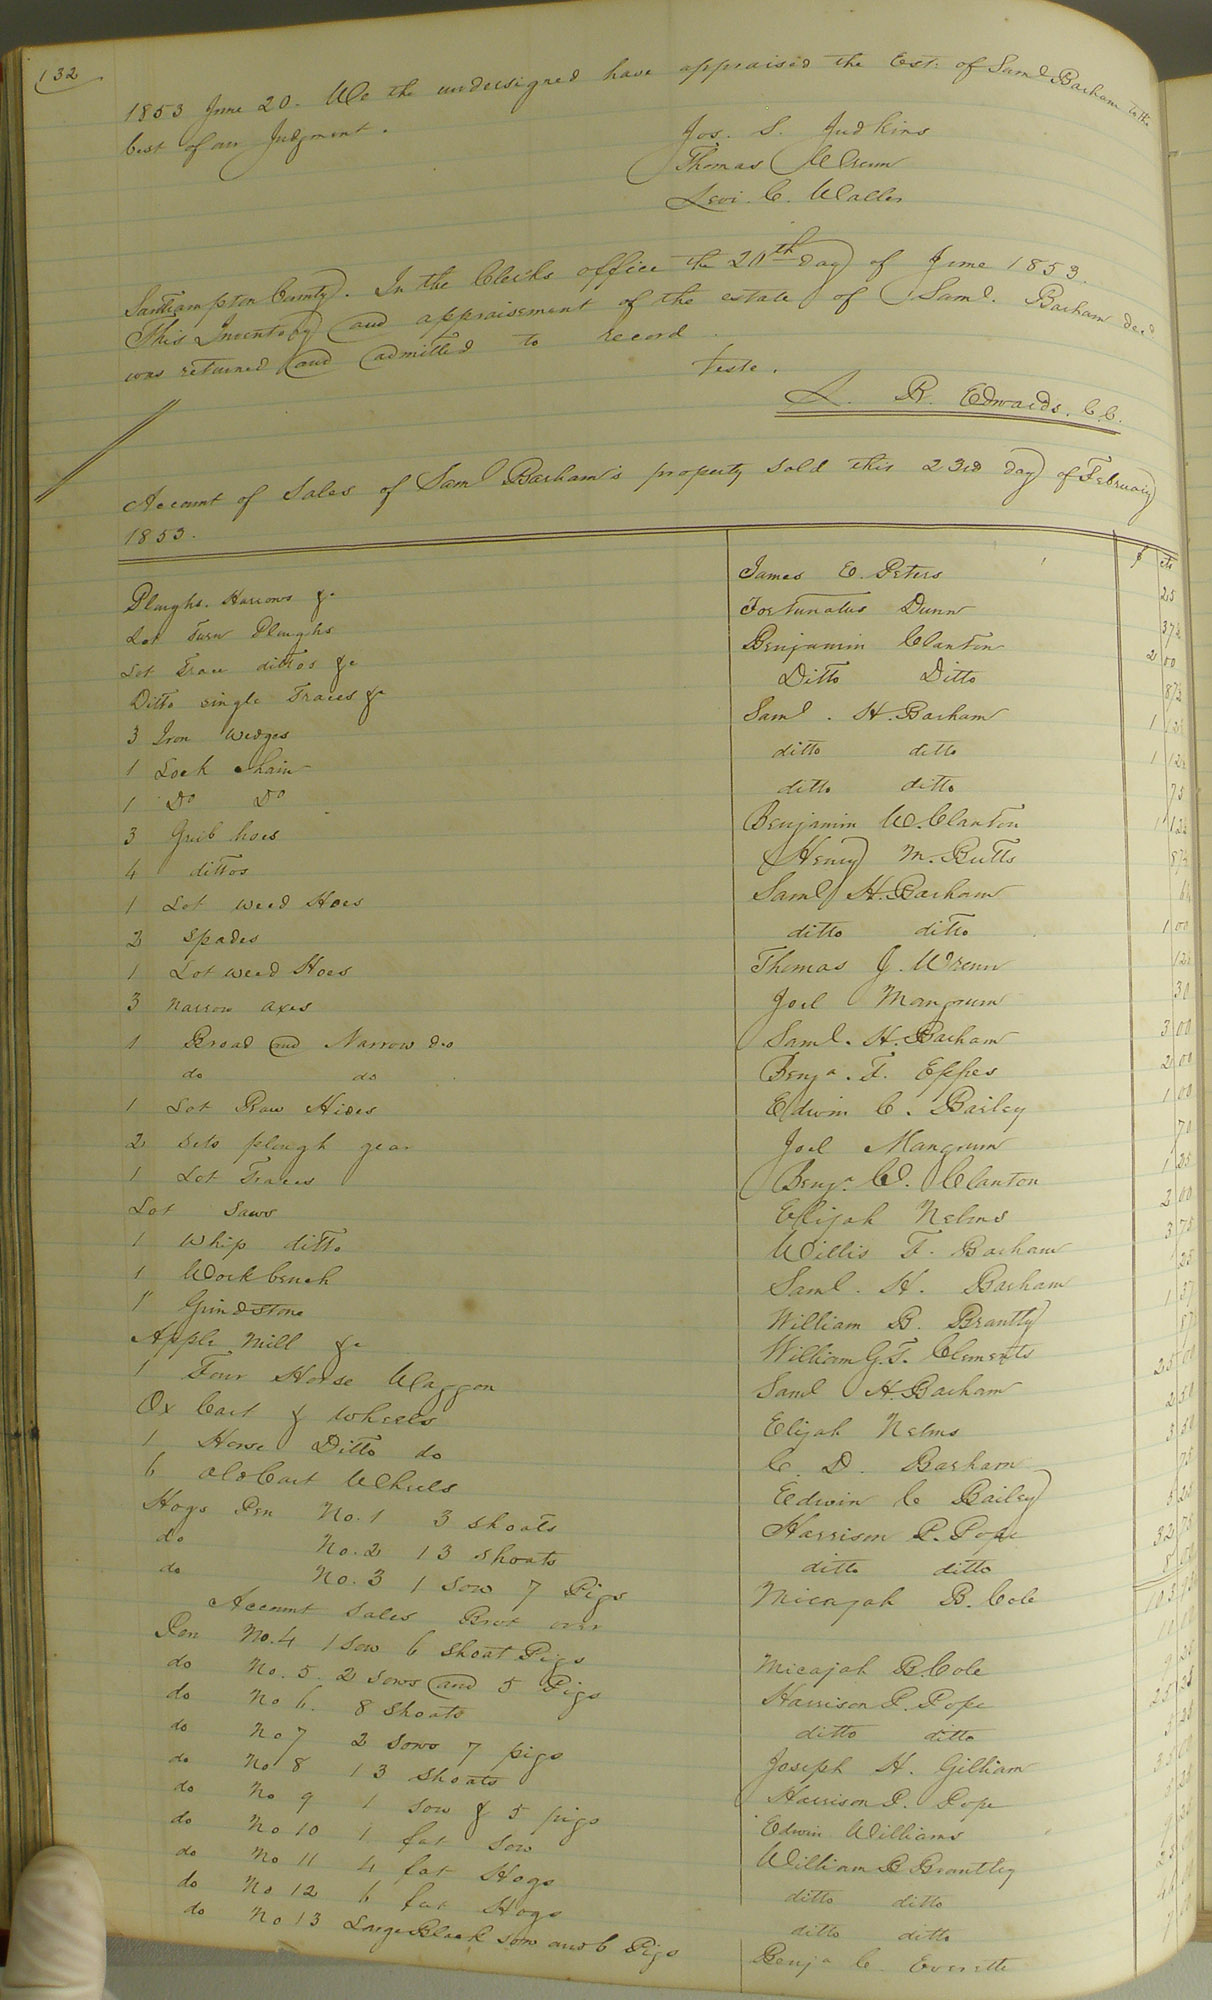 132
1853 June 20. We the undersigned have appraised the Est. of Saml Barham to the
best of our Judgment.
Jos. S. Judkins
Thomas Wrenn
Levi C. Waller
Southampton County. In the Clerks office the 20th day of June 1853.
This Inventory and appraisement of the estate of Saml. Barham decd
was returned and admitted to record
Teste.
L. R. Edwards. C.C.
Account of Sales of Saml Barham's property sold this 23rd day of February
1853.
$ cts
Ploughs. Harrows &c James E. Peters 25
Lot Turn Ploughs Fortunatus Dunn 37½
Lot Trace dittos &c Benjamin Clanton 2 00
Ditto single Traces &c Ditto Ditto 87½
3 Iron wedges Saml. H. Barham 1
1 Lock chain ditto ditto 1 12½
1 Do Do ditto ditto 75
3 Grub hoes Benjamin W. Clanton 12½
4 dittos Henry M. Butts 87½
1 Lot weed Hoes Saml H. Barham
2 Spades ditto ditto 1 00
1 Lot weed Hoes Thomas J. Wrenn 12½
3 narrow axes Joel Mangrum 30
1 Broad and Narrow do Saml. H. Barham 3 00
do do Benja. F. Eppes 2 00
1 Lot Raw Hides Edwin C. Bailey 1 00
2 sets plough gear Joel Mangrum 70
1 Lot Traces Benja. W. Clanton 1 25
Lot Saws Elijah Nelms 2 00
1 Whip ditto Willis F. Barham 3 75
1 Workbench Saml. H. Barham 25
1 Grindstone William B. Brantly 1 37
Apple Mill &c William G. F. Clements
1 Four Horse Waggon Saml H. Barham 25 00
Ox Cart & wheels Elijah Nelms 2 50
1 Horse Ditto do C. D. Barham 3 50
6 old Cart Wheels Edwin C Bailey 75
Hogs Pen No. 1 3 shoats Harrison P. Pope
do No. 2 13 shoats ditto ditto 32 75
do No. 3 1 Sow 7 Pigs Micajah B. Cole 8
Account Sales Brot over 103
Pen No. 4 1 Sow 6 shoat Pigs Micajah B. Cole
do No. 5. 2 sows and 5 Pigs Harrison P. Pope
do No 6. 8 Shoats ditto ditto
do No 7 2 sows 7 pigs Joseph H. Gilliam
do No 8 13 shoats Harrison P. Pope
do No 9 1 sow & 5 pigs Edwin Williams
do No 10 1 fat Sow William B Brantley
do No 11 4 fat Hogs ditto ditto
do No 12 6 fat Hogs ditto ditto
do No 13 Large Black sow and 6 Pigs Benja C. Everitte